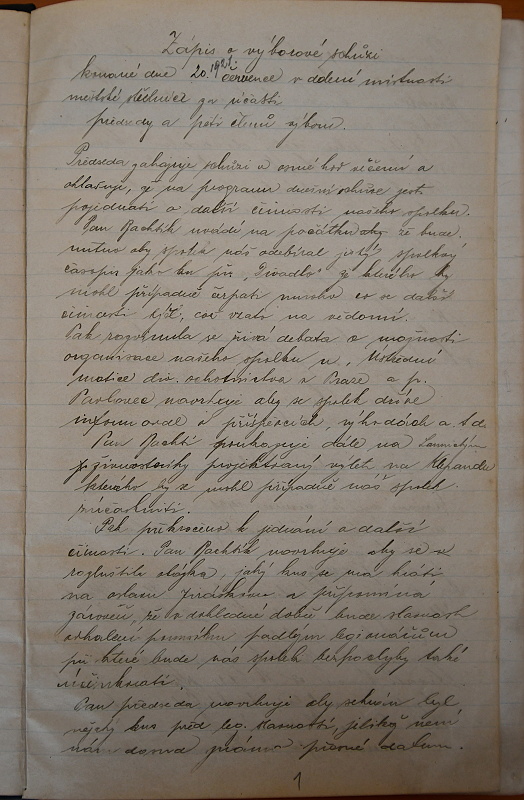 Zápis o výborové schůzi
konané dne 20. července 192 v dolení místnosti
městské střelnice za účasti
předsedy a pěti členů výboru.
Předseda zahajuje schůzi v osmé hod. večerní a
ohlašuje, že na programu dnešní schůze jest
pojednati o další činnosti našeho spolku.
Pan Bachtík uvádí na počátku aby že bude
nutno aby spolek náš odebíral jistý spolkový
časopis jako ku př. "Divadlo" ze kterého by
mohl případně čerpati mnoho co se další
činnosti týče, což vzato na vědomí.
Pak rozvinula se živá debata o možnosti
organisace našeho spolku u Ústřední
matice div. ochotnictva v Praze a p.
Pavlovec navrhuje aby se spolek dříve
informoval o příspěvcích, výhodách a t.d.
Pan Bachtí poukazuje dále na
živnostníky projektovaný výlet na
kterého by se mohl případně náš spolek
zúčastniti.
Pak přikročeno k jednání o další
činosti. Pan Bachtík navrhuje aby se
rozluštila otázka, jaký kus se má hráti
na oslavu a připomíná
zároveň, že v dohledné době bude slavnost
odhalení pomníku padlým legionářům
při které bude náš spolek bezpochyby také
účinkovati.
Pan předseda navrhuje aby sehrán byl
nějaký kus před leg. slavností, jelikož není
nám dosud známo přesné datum.
1